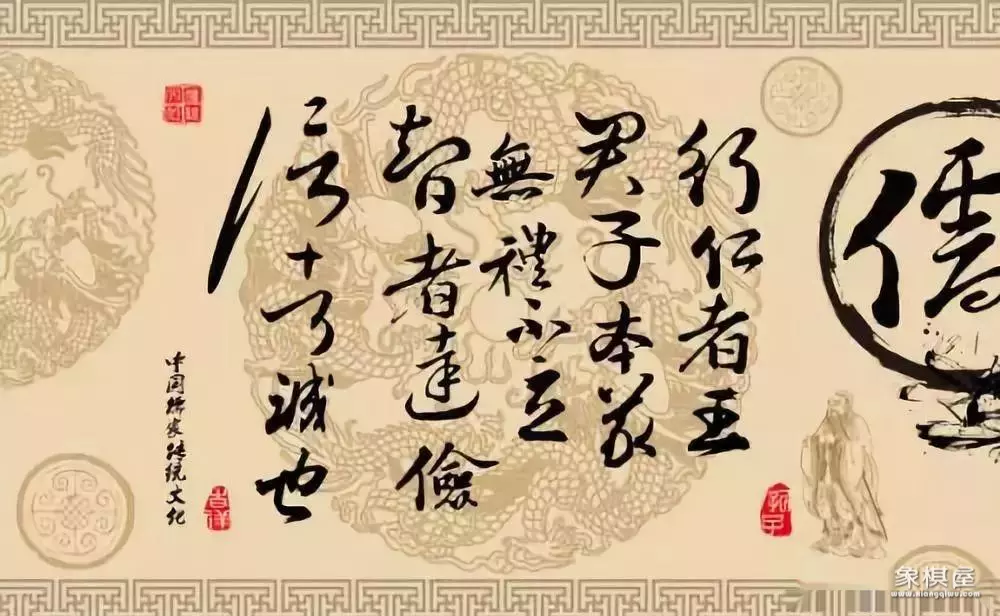 儒
行仁者王
君子本義
無禮不立
智者達儉
信十可誠也
中国儒家传统文化
吉祥
孔子
象棋屋
www.xiangqiwu.com